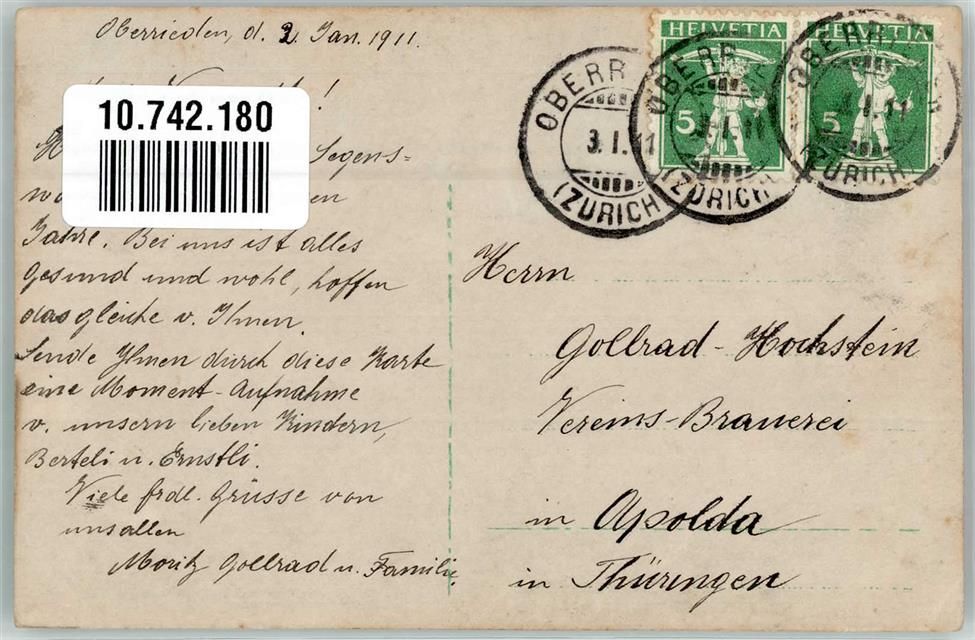 Oberrieden, d. 2. Jan. 1911.
!
10.742.180
Segens=
en
Jahre. Bei uns ist alles
gesund und wohl, hoffen
das gleiche v. Ihnen.
Sende Ihnen durch diese Karte
eine Moment-Aufnahme
v. unsern lieben Kindern,
Berteli u. Ernstli.
Viele frdl. Grüsse von
uns allen
Moritz Gollrad u. Familie.
HELVETIA
5
HELVETIA
5
OBERR
3.I.11
(ZÜRICH
OBERR
3.I.11
(ZÜRICH)
OBERRI
3.I.11
(ZÜRICH)
Herrn
Gollrad-Hochstein
Vereins-Brauerei
in Apolda
in Thüringen